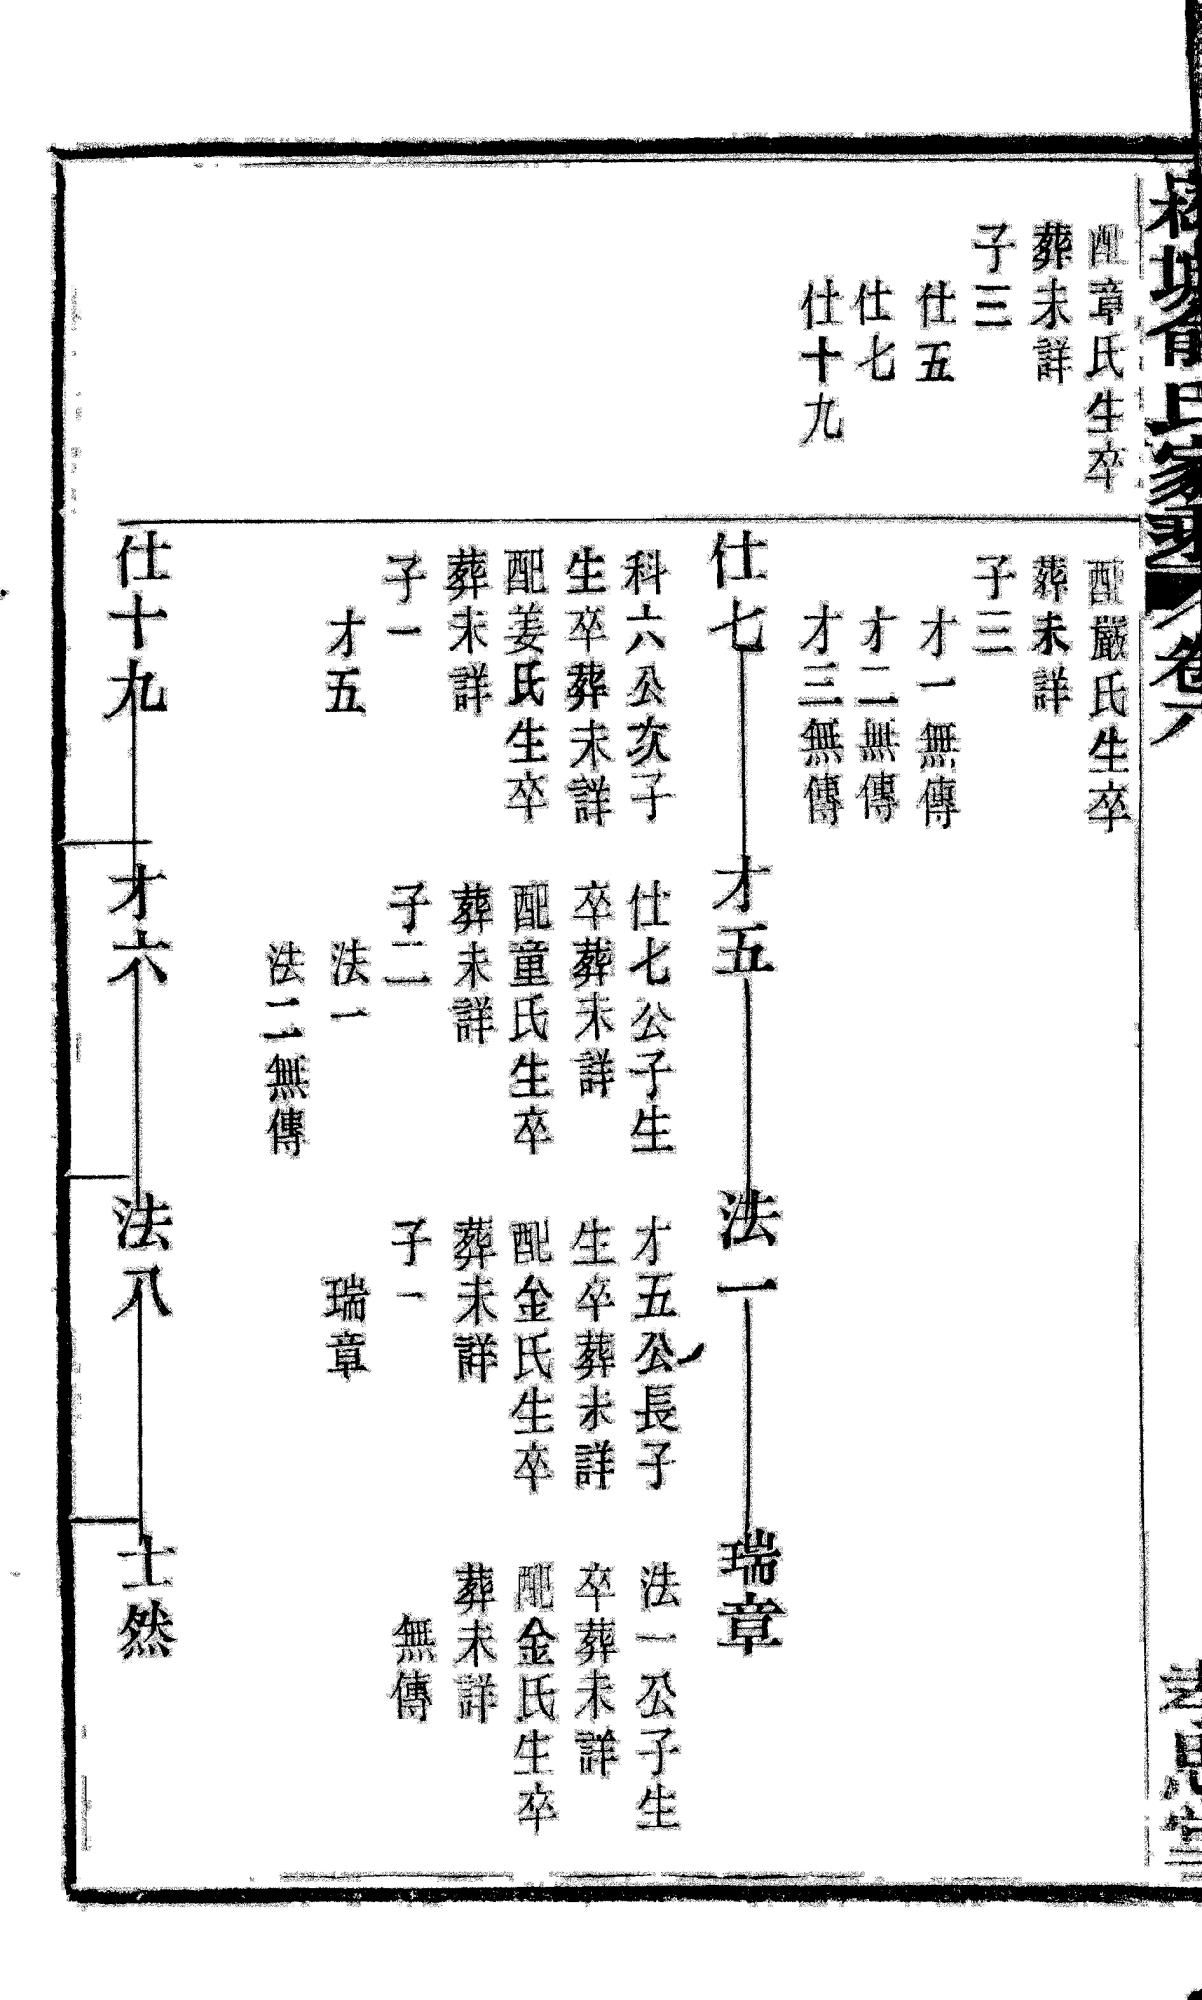 俞氏家乘 卷六
配章氏生卒
葬未詳
子三
仕五
仕七
仕十九
配嚴氏生卒
葬未詳
子三
才一無傳
才二無傳
才三無傳
仕七
科六公次子
生卒葬未詳
配姜氏生卒
葬未詳
子一
才五
才五
仕七公子生
卒葬未詳
配童氏生卒
葬未詳
子二
法一
法二無傳
法一
才五公長子
生卒葬未詳
配金氏生卒
葬未詳
子一
瑞章
瑞章
法一公子生
卒葬未詳
配金氏生卒
葬未詳
無傳
仕十九
才六
法八
士然